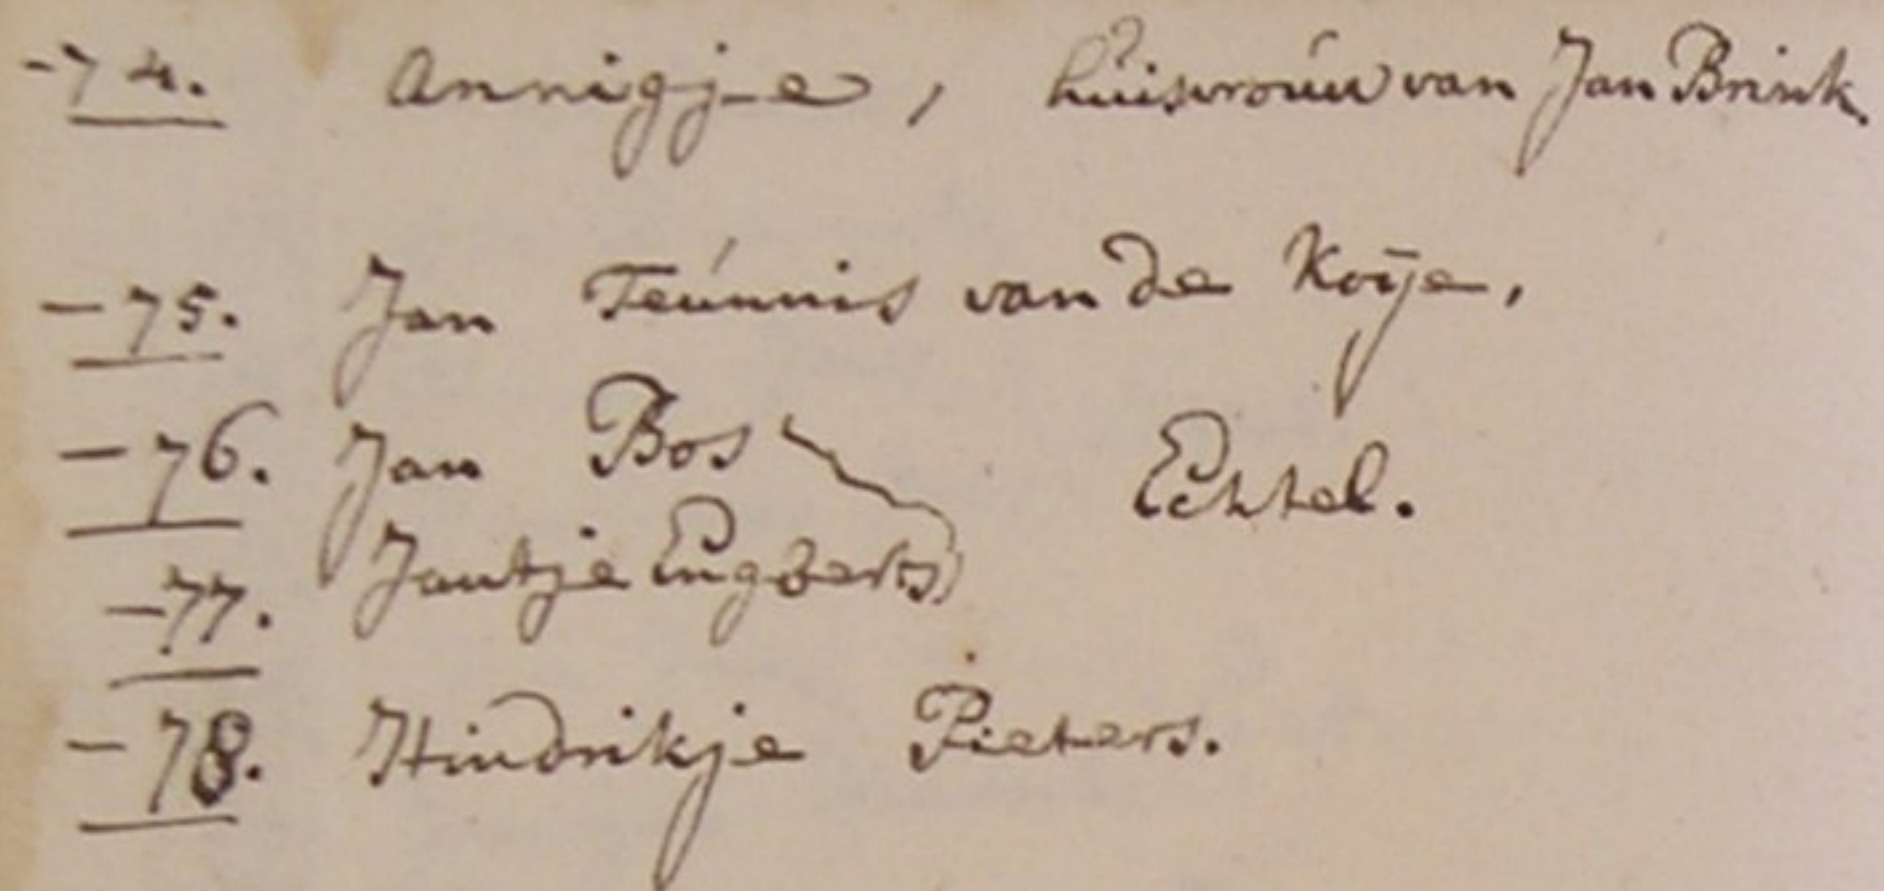 -74. Annigje, huisvrouw van Jan Brink.
-75. Jan Teunnis van de Koije,
-76. Jan Bos Echtel.
-77. Jantje Engberts
-78. Hindrikje Pieters.